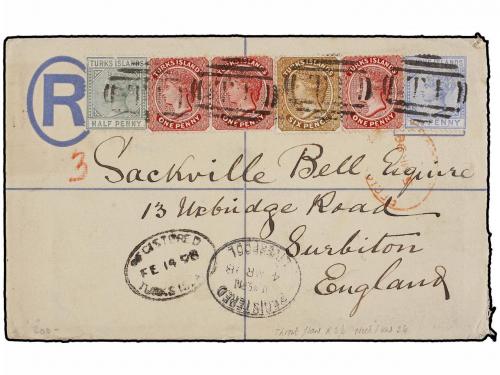 TURKS ISLANDS TURKS ISLANDS TURKS ISLANDS TURKS ISLANDS TURKS ISLANDS TURKS ISLANDS
R
HALF PENNY ONE PENNY ONE PENNY SIX PENCE ONE PENNY PENNY
3
Sackville Bell Esquire
13 Uxbridge Road
Surbiton
England
REGISTERED
FE 19 98
TURKS
REGISTERED
4 MR 98
LIVERPOOL